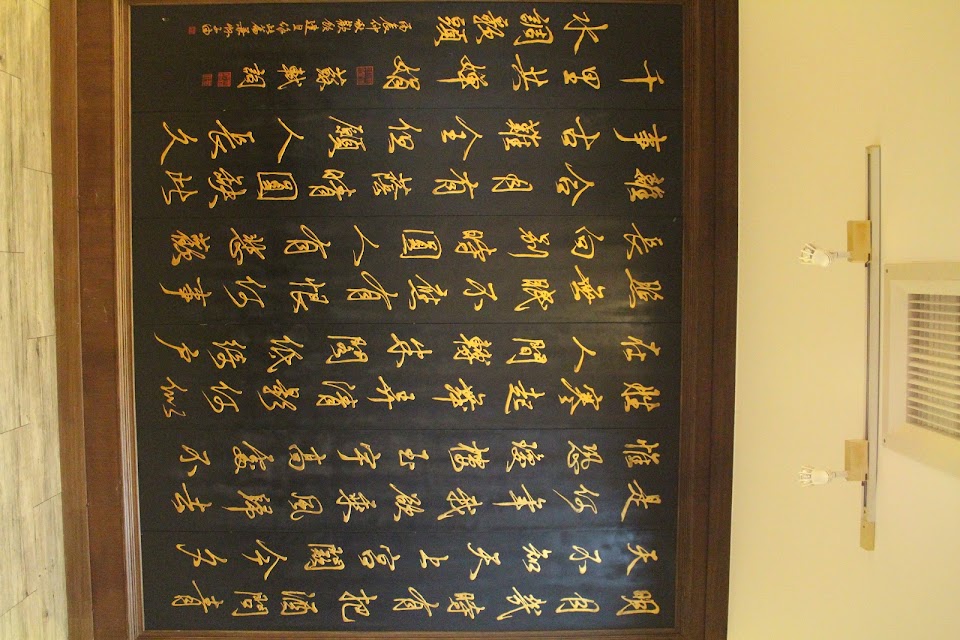 明月幾時有把酒問青
天不知天上宮闕今夕
是何年我欲乘風歸去
惟恐瓊樓玉宇高處不
勝寒起舞弄清影何似
在人間轉朱閣低綺戶
照無眠不應有恨何事
長向別時圓人有悲歡
離合月有陰晴圓缺此
事古難全但願人長久
千里共嬋娟 蘇軾詞
水調歌頭 丙辰仲秋歡飲達旦作此篇兼懷子由